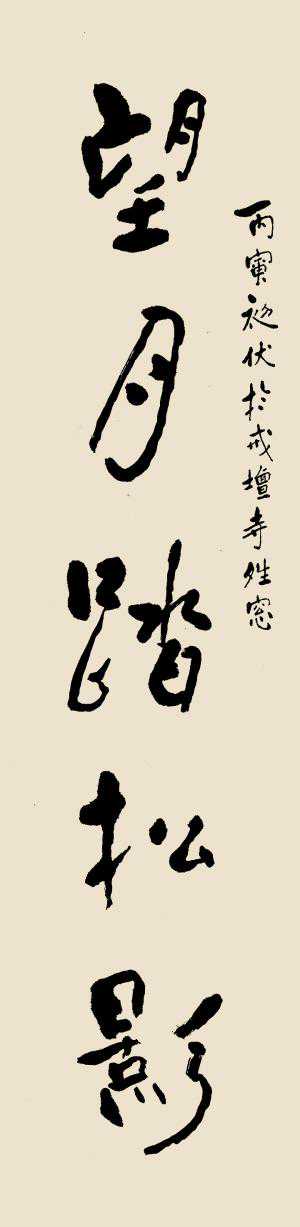 丙寅初伏於戒壇寺北窓
望月踏松影